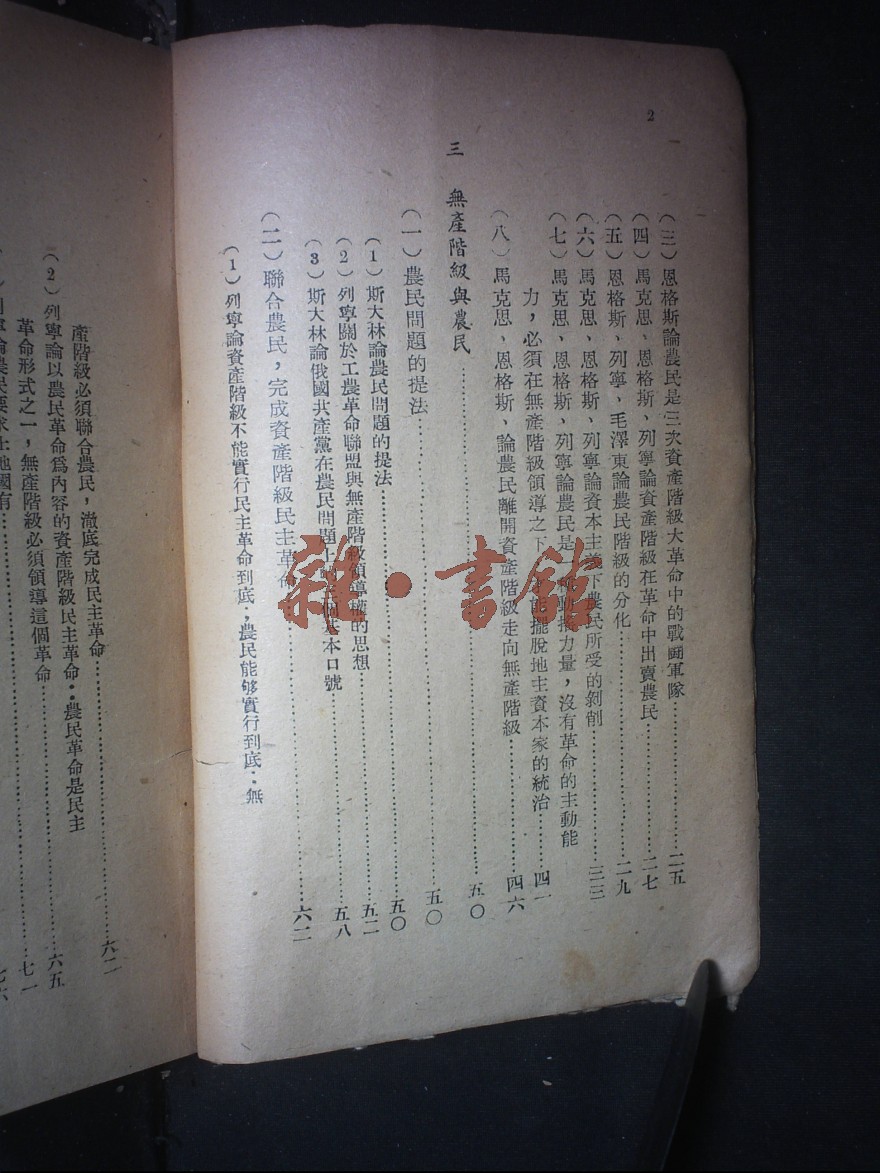 2
(三)恩格斯論農民是三次資產階級大革命中的戰鬪軍隊……二五
(四)馬克思、恩格斯、列寧論資產階級在革命中出賣農民……二七
(五)恩格斯、列寧、毛澤東論農民階級的分化……二九
(六)馬克思、恩格斯、列寧論資本主義下農民所受的剝削……三三
(七)馬克思、恩格斯、列寧論農民是 力量,沒有革命的主動能
力,必須在無產階級領導之下 能擺脫地主資本家的統治……四一
(八)馬克思、恩格斯、論農民離開資產階級走向無產階級……四六
三 無產階級與農民……五〇
(一)農民問題的提法……五〇
(1)斯大林論農民問題的提法……五〇
(2)列寧關於工農革命聯盟與無產階級領導權的思想……五二
(3)斯大林論俄國共產黨在農民問題上 本口號……五八
(二)聯合農民,完成資產階級民主革命……六二
(1)列寧論資產階級不能實行民主革命到底;農民能够實行到底:無
產階級必須聯合農民,澈底完成民主革命……六二
(2)列寧論以農民革命爲內容的資產階級民主革命:農民革命是民主
革命形式之一,無產階級必須領導這個革命……六五
列寧論農民要求土地國有……七一
七六
雜·書館